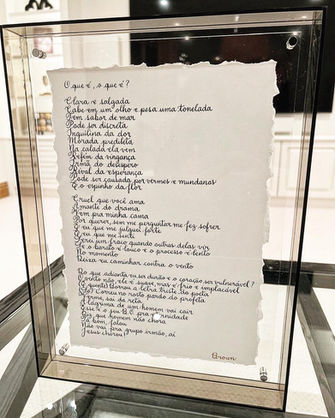 O que é, o que é?
Clara e salgada
Cabe em um olho e pesa uma tonelada
Tem sabor de mar
Pode ser discreta
Inquilina da dor
Morada predileta
Na calada ela vem
Refém da vingança
Irmã do desespero
Rival da esperança
Pode ser causada por vermes e mundanos
E o espinho da flor
Cruel que você ama
Amante do drama
Vem pra minha cama
Por querer, sem me perguntar me fez sofrer
E eu que me julguei forte
E eu que me senti
Serei um fraco quando outras delas vir
Se o barato é louco e o processo é lento
No momento
Deixa eu caminhar contra o vento
Do que adianta eu ser durão e o coração ser vulnerável?
O vento não, ele é suave, mas é frio e implacável
(É quente) Borrou a letra triste do poeta
(Só) Correu no rosto pardo do profeta
Verme, sai da reta
A lágrima de um homem vai cair
Esse é o seu B.O. pra eternidade
Diz que homem não chora
Tá bom, falou
Não vai pra grupo irmão, aí
Jesus chorou!
Brown